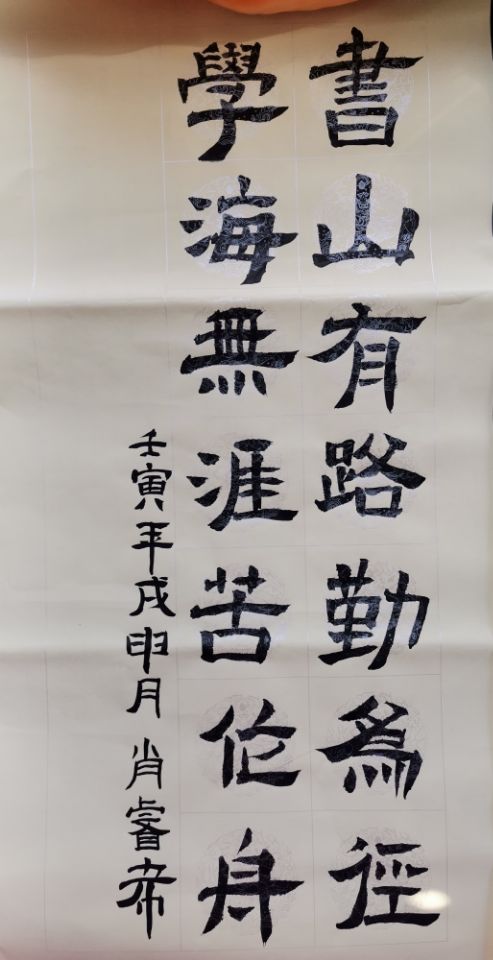 書山有路勤為徑
學海無涯苦作舟
壬寅年戊申月 肖睿帝